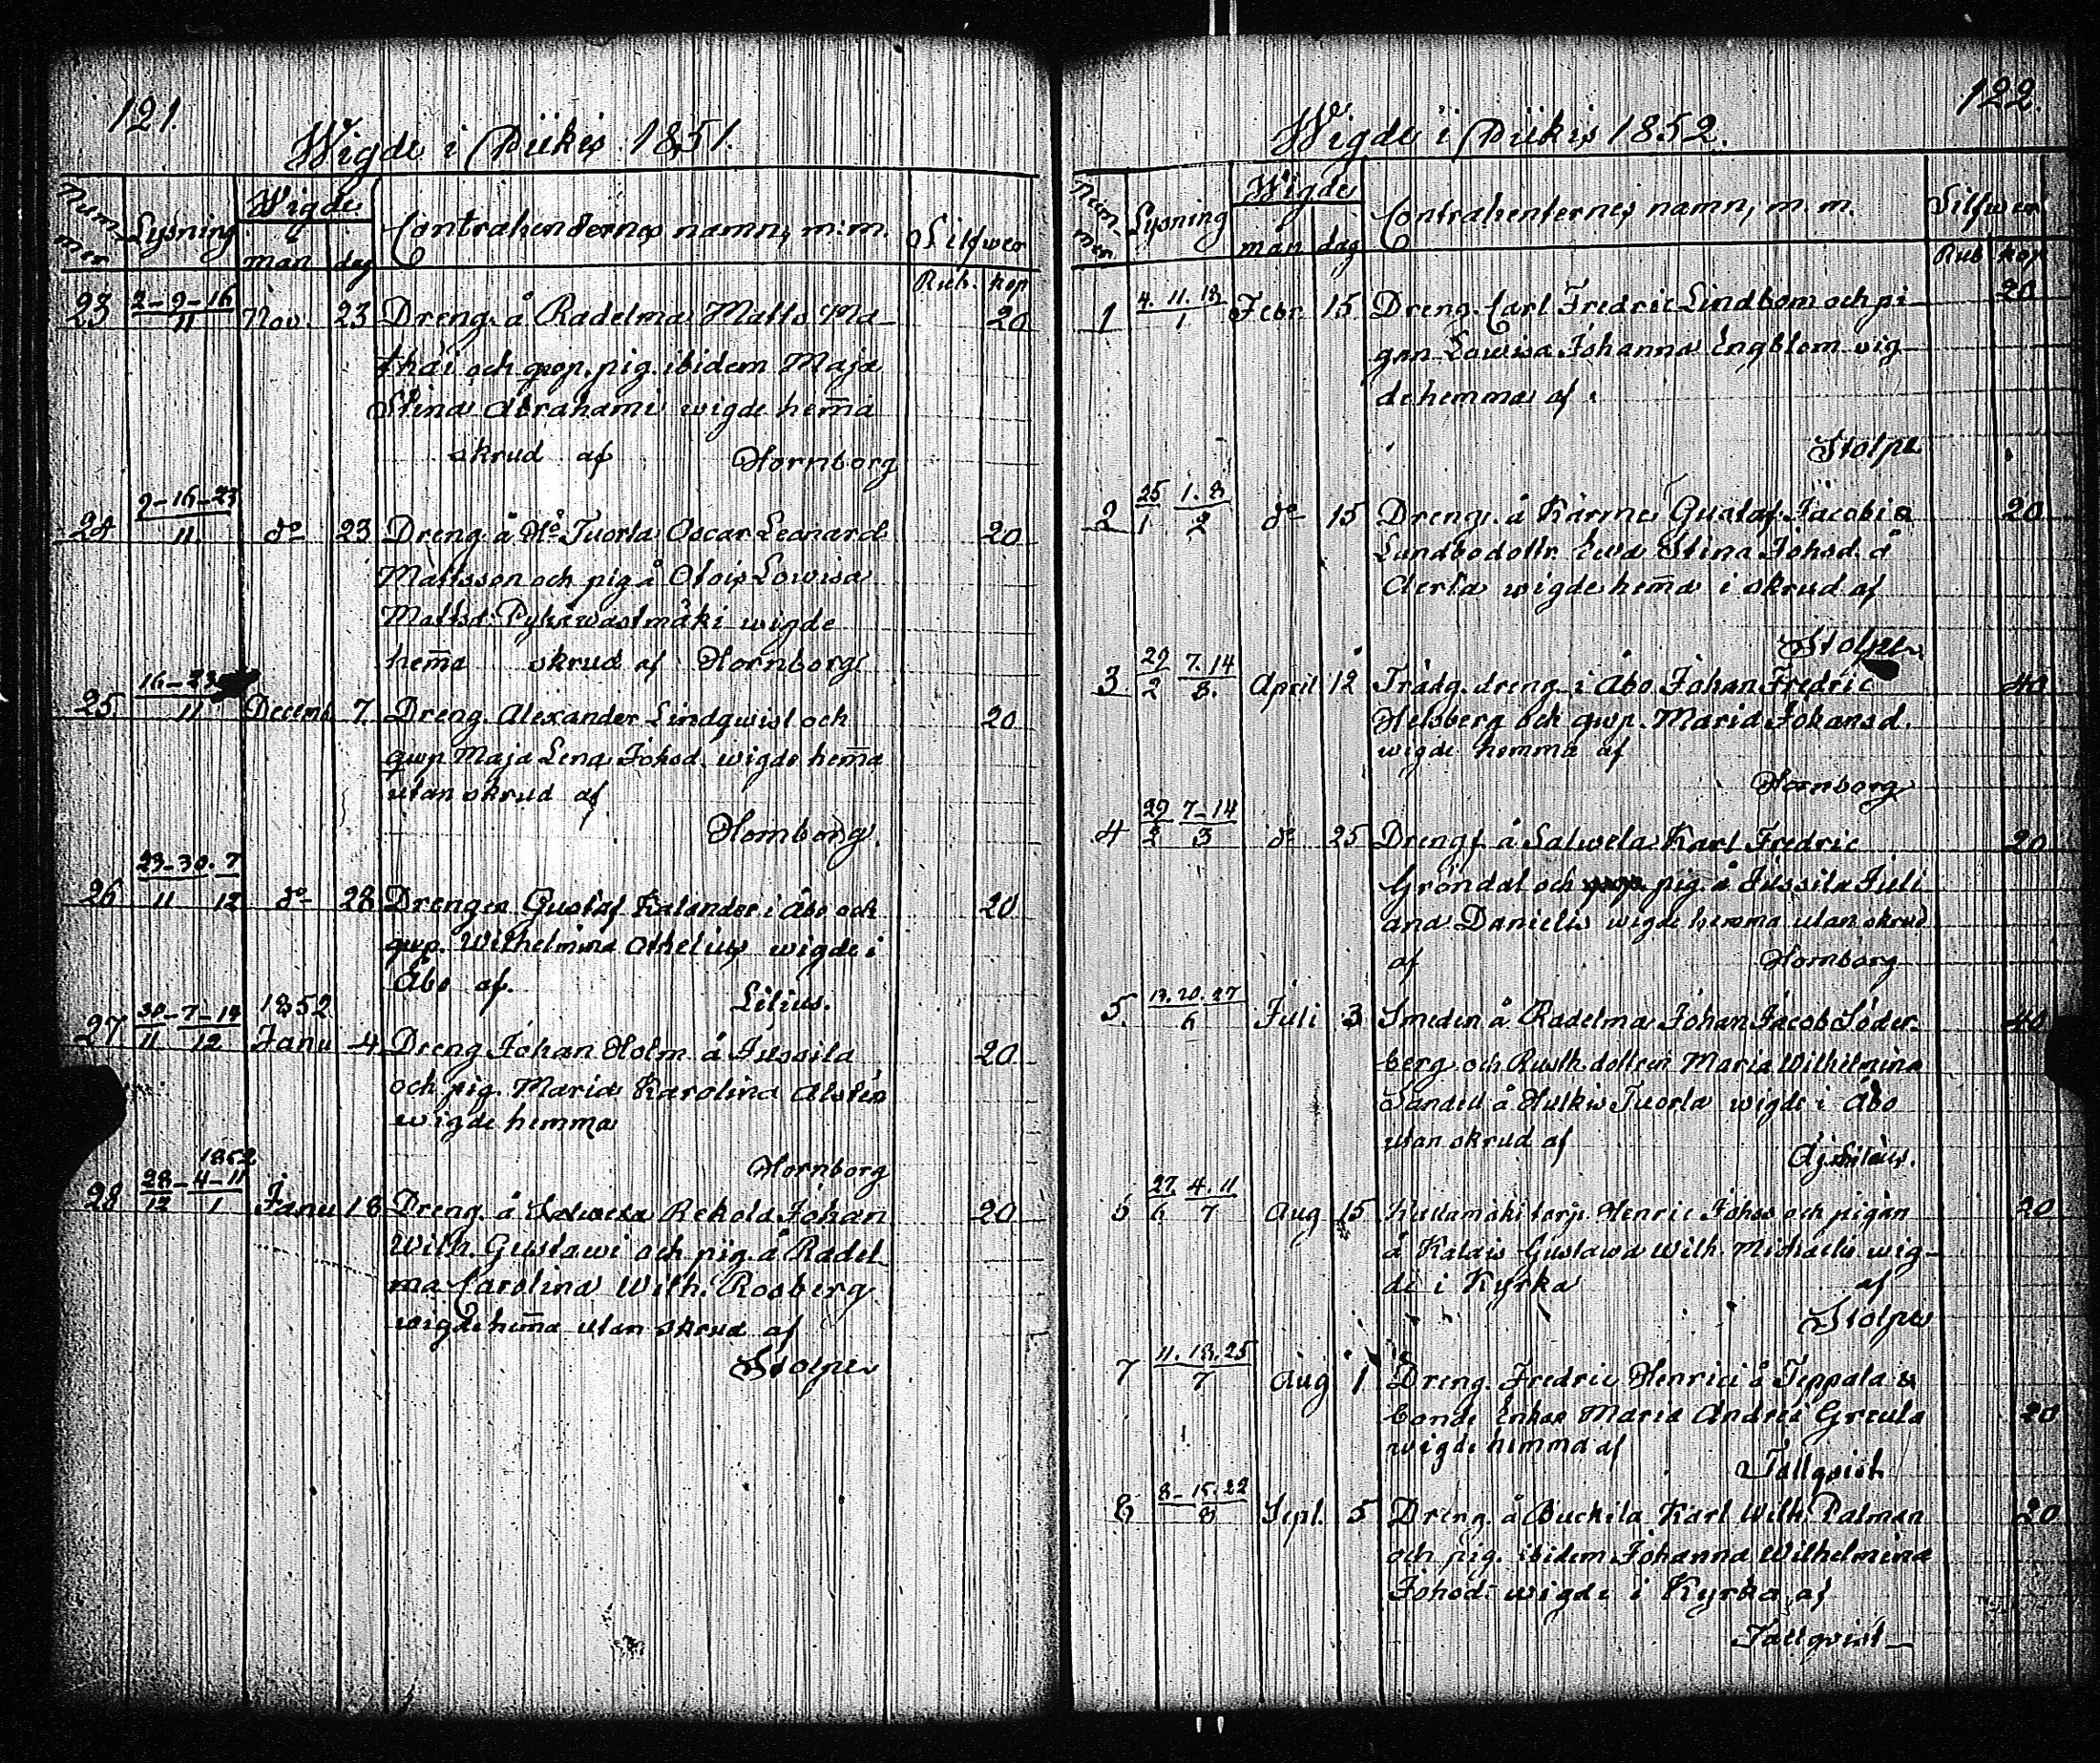 121.
Wigde i Piikis 1851.
Num-
mer
Lysning
Wigde
mån dag
Contrahenternes namn, m:m.
Silfwer
Rub. kop
23 2-9-16/11 Nov. 23 Dreng. å Radelma Matts Ma- 20
thäi och qwp. pig. ibidem Maja
Stina Abrahami wigde hem̄a
skrud af Hornborg
24 9-16-23/11 do 23 Dreng å Ho Tuorla Oscar Leonard 20
Mattsson och pig å Olois Lowisa
Mattsd. wigde
hem̄a skrud af Hornborg
25 16-23/11 Decemb 7. Dreng. Alexander Lindqwist och 20
qwp Maja Lena Johsd. wigde hem̄a
utan skrud af
Hornborg.
26 23-30/11 7/12 do 28 Drengen Gustaf Kalander i Åbo och 20
qwp. Wilhelmina Othelius wigde i
Åbo af. Lilius.
1852
27 30/11 - 7-14/12 Janu 4 Dreng Johan Holm å Jussila 20
och pig. Maria Karolina Alstén
wigde hemma
Hornborg
1852
28 28/12 - 4-11/1 Janu 18 Dreng. å Salwela Rekola Johan 20
Wilh. Gustawi och pig. å Radel-
ma Carolina Wilh. Rosberg
wigde hem̄a utan skrud af
Stolpe
122.
Wigde i Piikis 1852.
Num-
mer
Lysning
Wigde
mån dag
Contrahenternes namn, m. m.
Silfwer
Rub kop
1 4. 11. 18/1 Febr. 15 Dreng. Carl Fredric Lindbom och pi- 20
gan Lowisa Johanna Engblom wig-
de hemma af
Stolpe
2 25/1 1. 8/2 do 15 Dreng. å Kärme Gustaf Jacobi & 20
Lundbodottr. Ewa Stina Johsd. å
Aerla wigde hem̄a i skrud af
Stolpe.
3 29/2 7. 14/3. April 12 Trädg. dreng i Åbo Johan Fredric 40
Helsberg och qwp. Maria Johansd.
wigde hemma af
Hornborg
4 29/2 7-14/3 do 25 Dreng. å Salwela Karl Fredric 20
Gröndal och pig. å Jussila Juli
ana Danielis wigde hemma utan skrud
af Hornborg
5. 13. 20. 27/6 Juli 3 Smeden å Radelma Johan Jacob Söder- 40
berg och Rusth. dottren Maria Wilhelmina
Sandell å Hulkis Tuorla wigde i Åbo
utan skrud af
6 27/6 4. 11/7 Aug 15 torp. Henric Johss och pigan 20
å Kalais Gustawa Wilh. Michaelis wig-
de i Kyrka af
Stolpe
7 11. 18. 25/7 Aug 1 Dreng. Fredric Henrici å Teppala &
bonde Enkan Maria Andreä Greula 20
wigde hemma af
Tallqvist
8 8-15. 22/8 Sept. 5 Dreng. å Buckila Karl Wilh. Palman 20
och pig. ibidem Johanna Wilhelmina
Johsd. wigde i Kyrka af
Tallqvist